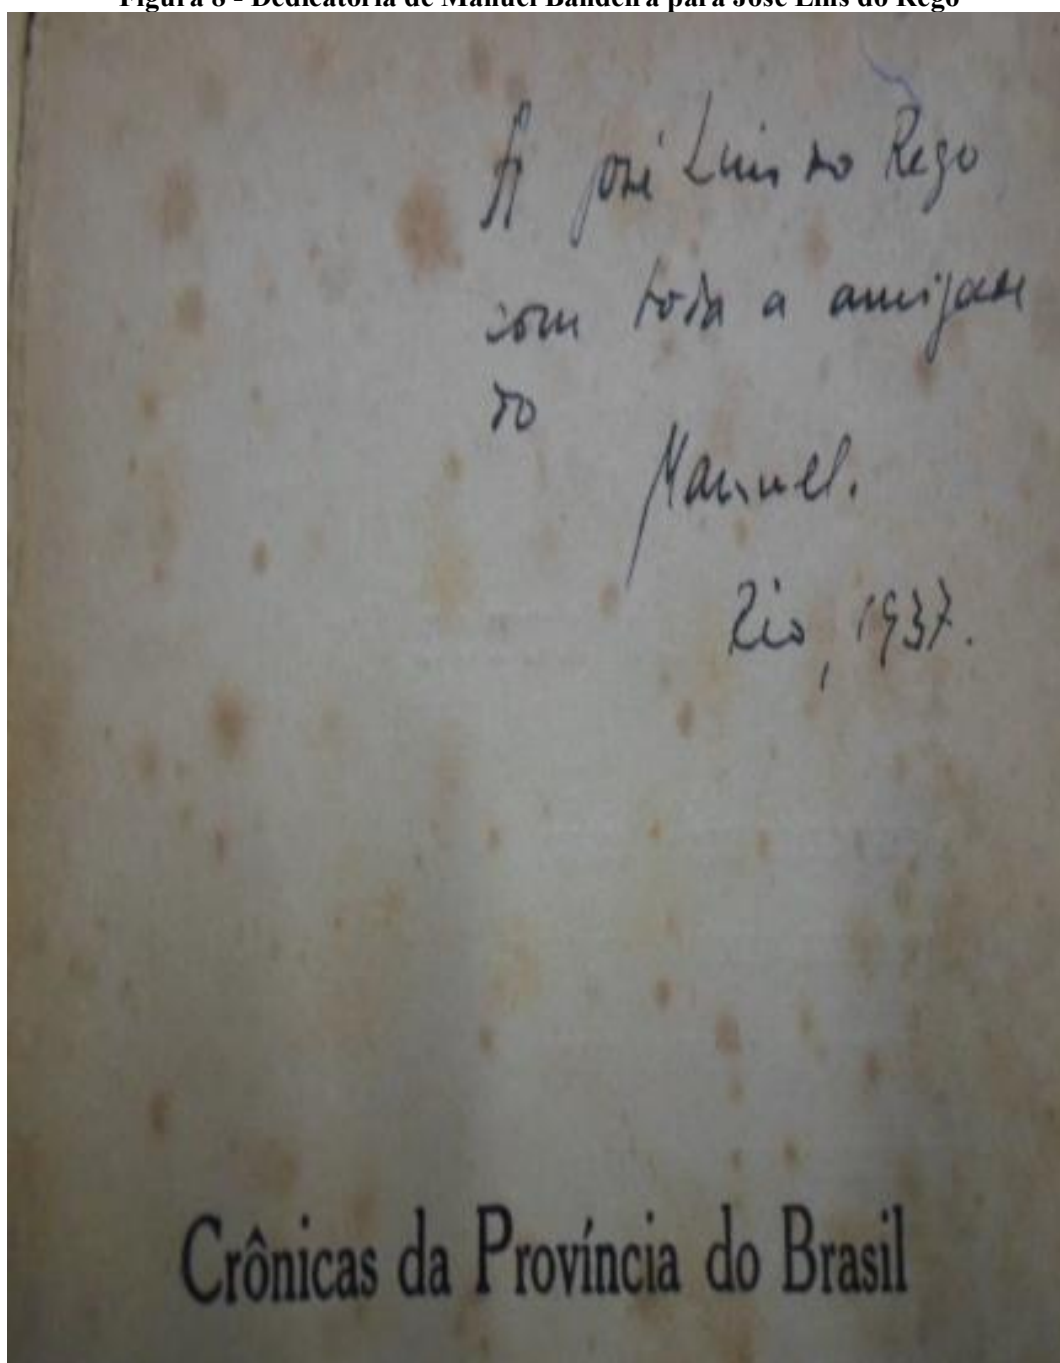 Figura 8 - Dedicatória de Manuel Bandeira para José Lins do Rego
A José Lins do Rego
com toda a amizade
do
Manuel.
Rio, 1937.
Crônicas da Província do Brasil